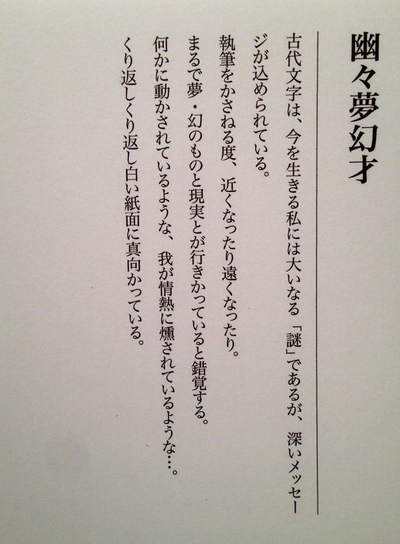 幽々夢幻才
古代文字は、今を生きる私には大いなる「謎」であるが、深いメッセー
ジが込められている。
執筆をかさねる度、近くなったり遠くなったり。
まるで夢・幻のものと現実とが行きかっていると錯覚する。
何かに動かされているような、我が情熱に燻されているような…。
くり返しくり返し白い紙面に真向かっている。